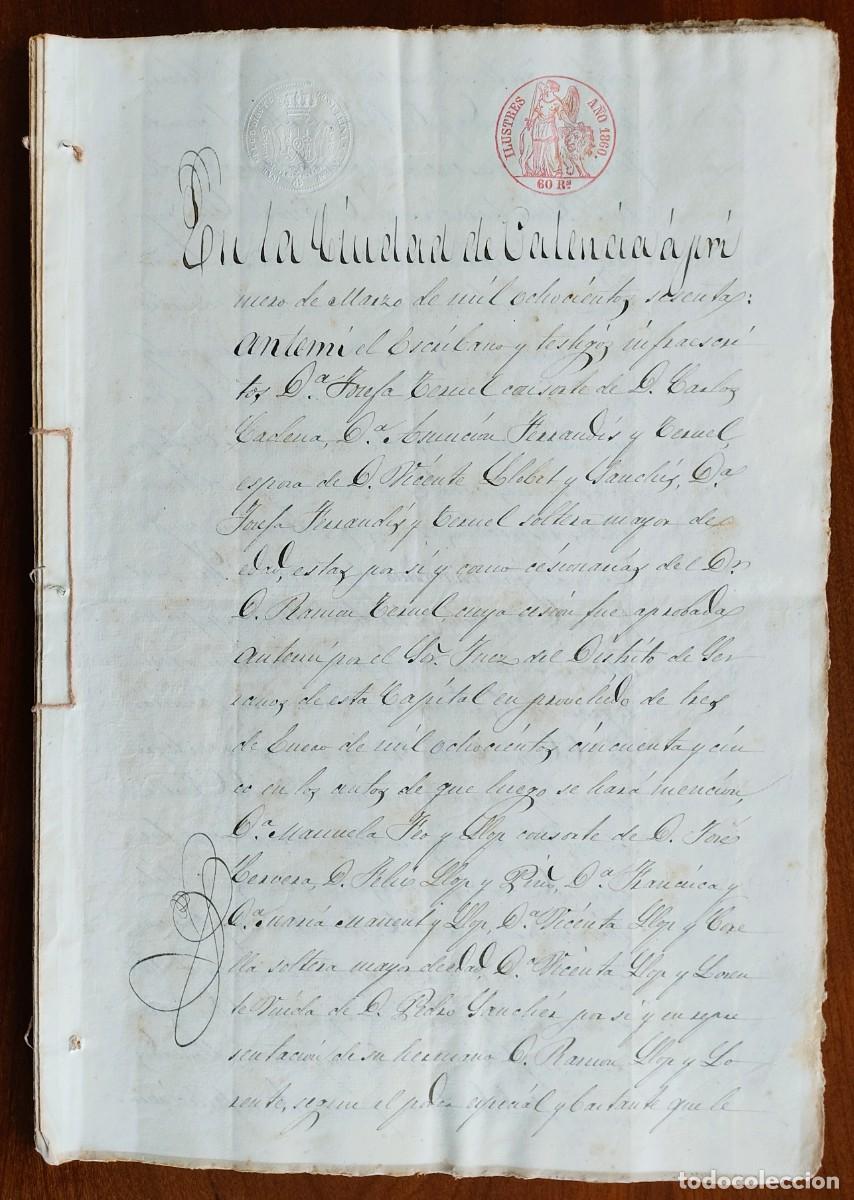 ILUSTRES AÑO 1860.
60 Rs
En la Ciudad de Valencia á pri
mero de Marzo de mil ochocientos sesenta:
antemi el Escribano y testigos infraescri
tos D.ª Josefa Teruel consorte de D. Carlos
Cadena, D.ª Asuncion Ferrandis y Teruel,
esposa de D. Vicente Llobet y Sanchis, D.ª
Josefa Ferrandis y Teruel soltera mayor de
edad, estas por si y como cesionarias del Dr.
D. Ramon Teruel, cuya cesion fue aprobada
antemi por el Sr. Juez del Distrito de Ser
ranos de esta Capital en provehido de tres
de Enero de mil ochocientos cincuenta y cin
co en los autos de que luego se hará mencion,
D.ª Manuela Feo y Llop consorte de D. José
Cervera, D. Felix Llop y D.ª Francisca y
D.ª Maria Manent y Llop, D.ª Vicenta Llop y Core
lla soltera mayor de edad, D.ª Vicenta Llop y Loren
te Viuda de D. Pedro Sanchez por si y en repre
sentacion de su hermano D. Ramon Llop y Lo
rente, segun el poder especial y bastante que le
todocoleccion